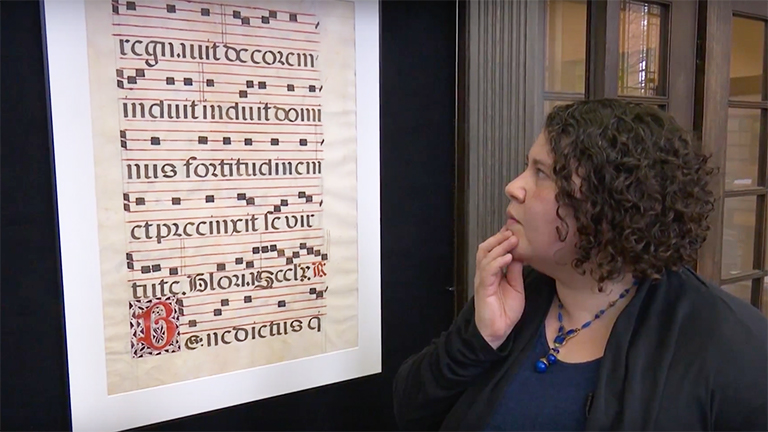 regnauit decorem
induit induit domi
nus fortitudinem
et precinxit se vir
tute. Gloria. Seclr. R
Benedictus q